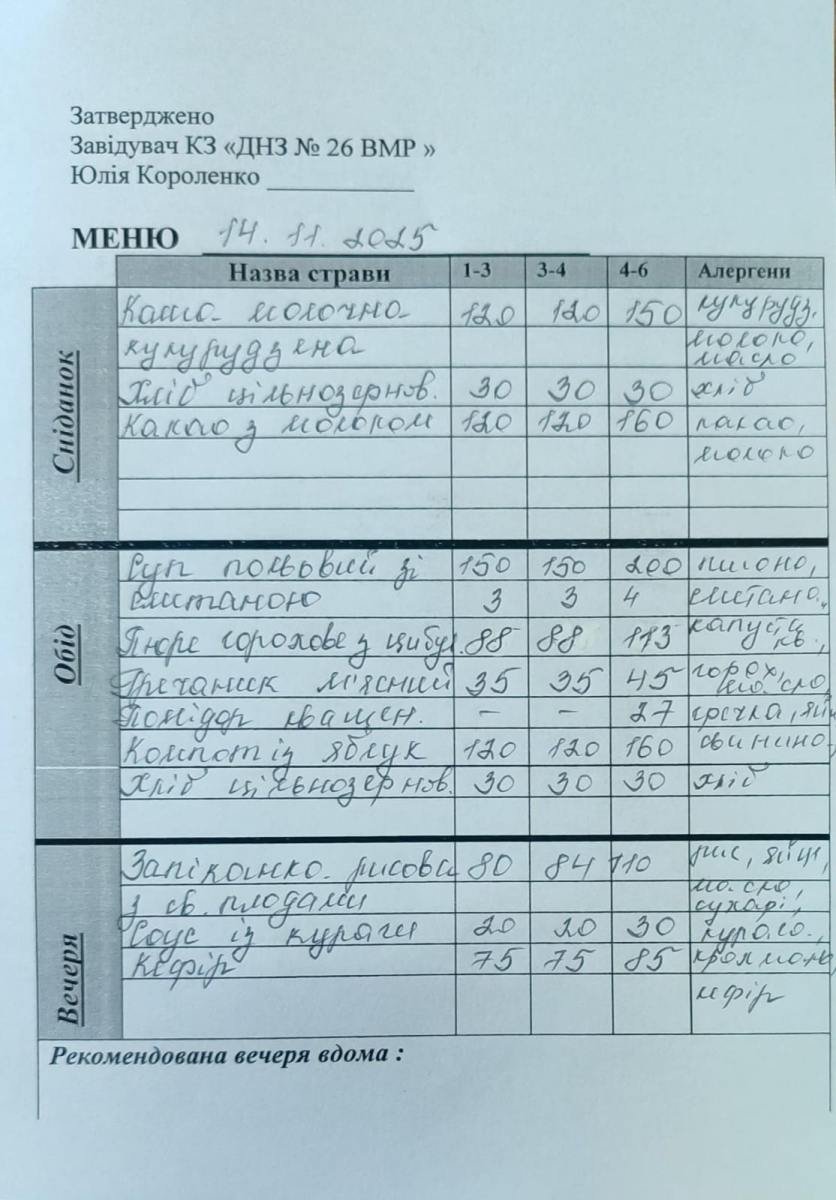 Затверджено
Завідувач КЗ «ДНЗ № 26 ВМР »
Юлія Короленко
МЕНЮ 14. 11. 2025
Назва страви 1-3 3-4 4-6 Алергени
Сніданок
Каша молочна 120 120 150 кукурудз.
кукурудзяна молоко, масло
Хліб цільнозернов. 30 30 30 хліб
Какао з молоком 120 120 160 какао,
молоко
Обід
Суп польовий зі 150 150 200 пшоно,
сметаною 3 3 4 сметана,
Пюре горохове з цибул. 88 88 113 капуста кв.,
Гречаник м'ясний 35 35 45 горох, масло,
Помідор квашен. - - 27 гречка, яйц
Компот із яблук 120 120 160 свинина,
Хліб цільнозернов. 30 30 30 хліб
Вечеря
Запіканка рисова 80 84 110 рис, яйця,
з св. плодами масло, сухарі,
Соус із кураги 20 20 30 курага,
Кефір 75 75 85 крохмаль,
кефір
Рекомендована вечеря вдома :